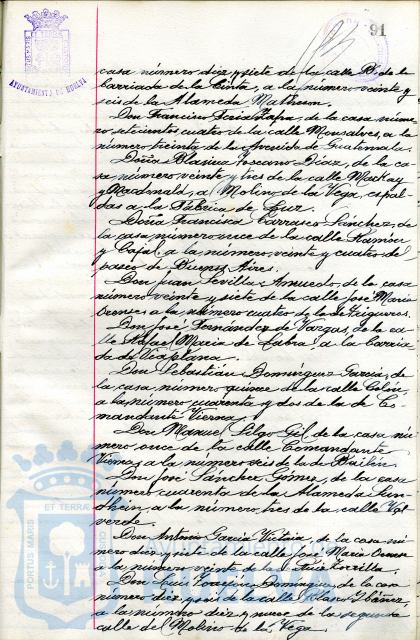 91
AYUNTAMIENTO DE HUELVA
casa número diez y siete de la calle B. de la
barriada de la Cinta, a la número veinte y
seis de la Alameda Matheson.
Don Francisco Zapa, de la casa núme
ro setecientos cuatro de la calle Monsalves, a la
número treinta de la Avenida de Guatemala.
Doña Blasina Toscano Díaz, de la ca
sa número veinte y tres de la calle Mackay
y Macdonald, a Molino de la Vega, espal
das a la Fábrica de Luz.
Doña Francisca Carrasco Sánchez, de
la casa número once de la calle Ramón
y Cajal, a la número veinte y cuatro del
paseo de Buenos Aires.
Don Juan Sevilla Amuedo, de la casa
número veinte y siete de la calle José María
Orense a la número cuatro de la de Trigueros.
Don José Fernández de Vargas, de la ca
lle Rafael María de Labra, a la barria
da de Viaplana.
Don Sebastián Domínguez García, de
la casa número quince de la calle Colón,
a la número cuarenta y dos de la de Co
mandante Vierna.
Don Manuel Gil, de la casa nú
mero once de la calle Comandante
Vierna, a la número seis de la de Bailén.
Don José Sánchez Gómez, de la casa
número cuarenta de la Alameda Sun
dheim, a la número tres de la calle Val
verde.
Don Antonio García, de la casa nú
mero diez de la calle José María Orense
a la número veinte de la Ruiz Zorrilla.
Don Luis Domínguez, de la casa
número diez y seis de la calle Blasco Ibáñez,
a la número diez y nueve de la segunda
calle del Molino de la Vega.
PORTUS MARIS ET TERRAE CUSTODIA